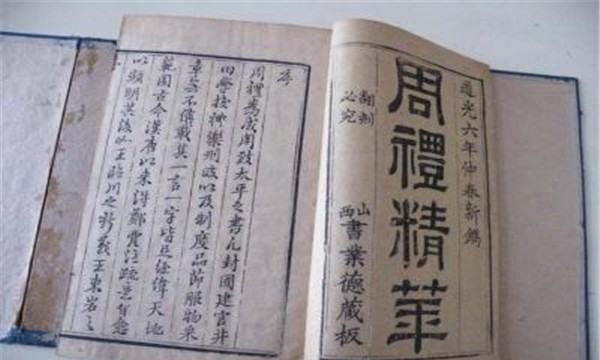 道光六年仲春新鐫
周禮精華
翻刻
必究
山西
書業德藏板
序
周禮為成周致太平之書凡封國建官井
田學校禮樂刑政以及制度品節服物采
章無不備載其一言一字皆足經緯天地
範圍古今漢唐以來得鄭賈注疏意旨愈
以顯明其後以王臨川之新義王東岩之